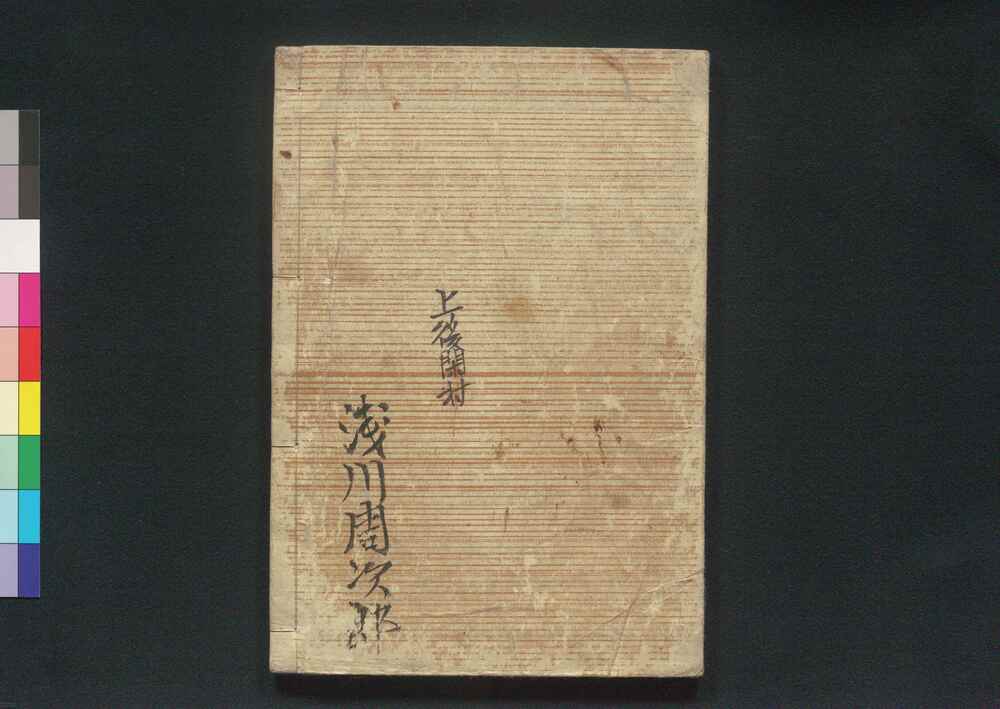 上後閑村
浅川周次郎